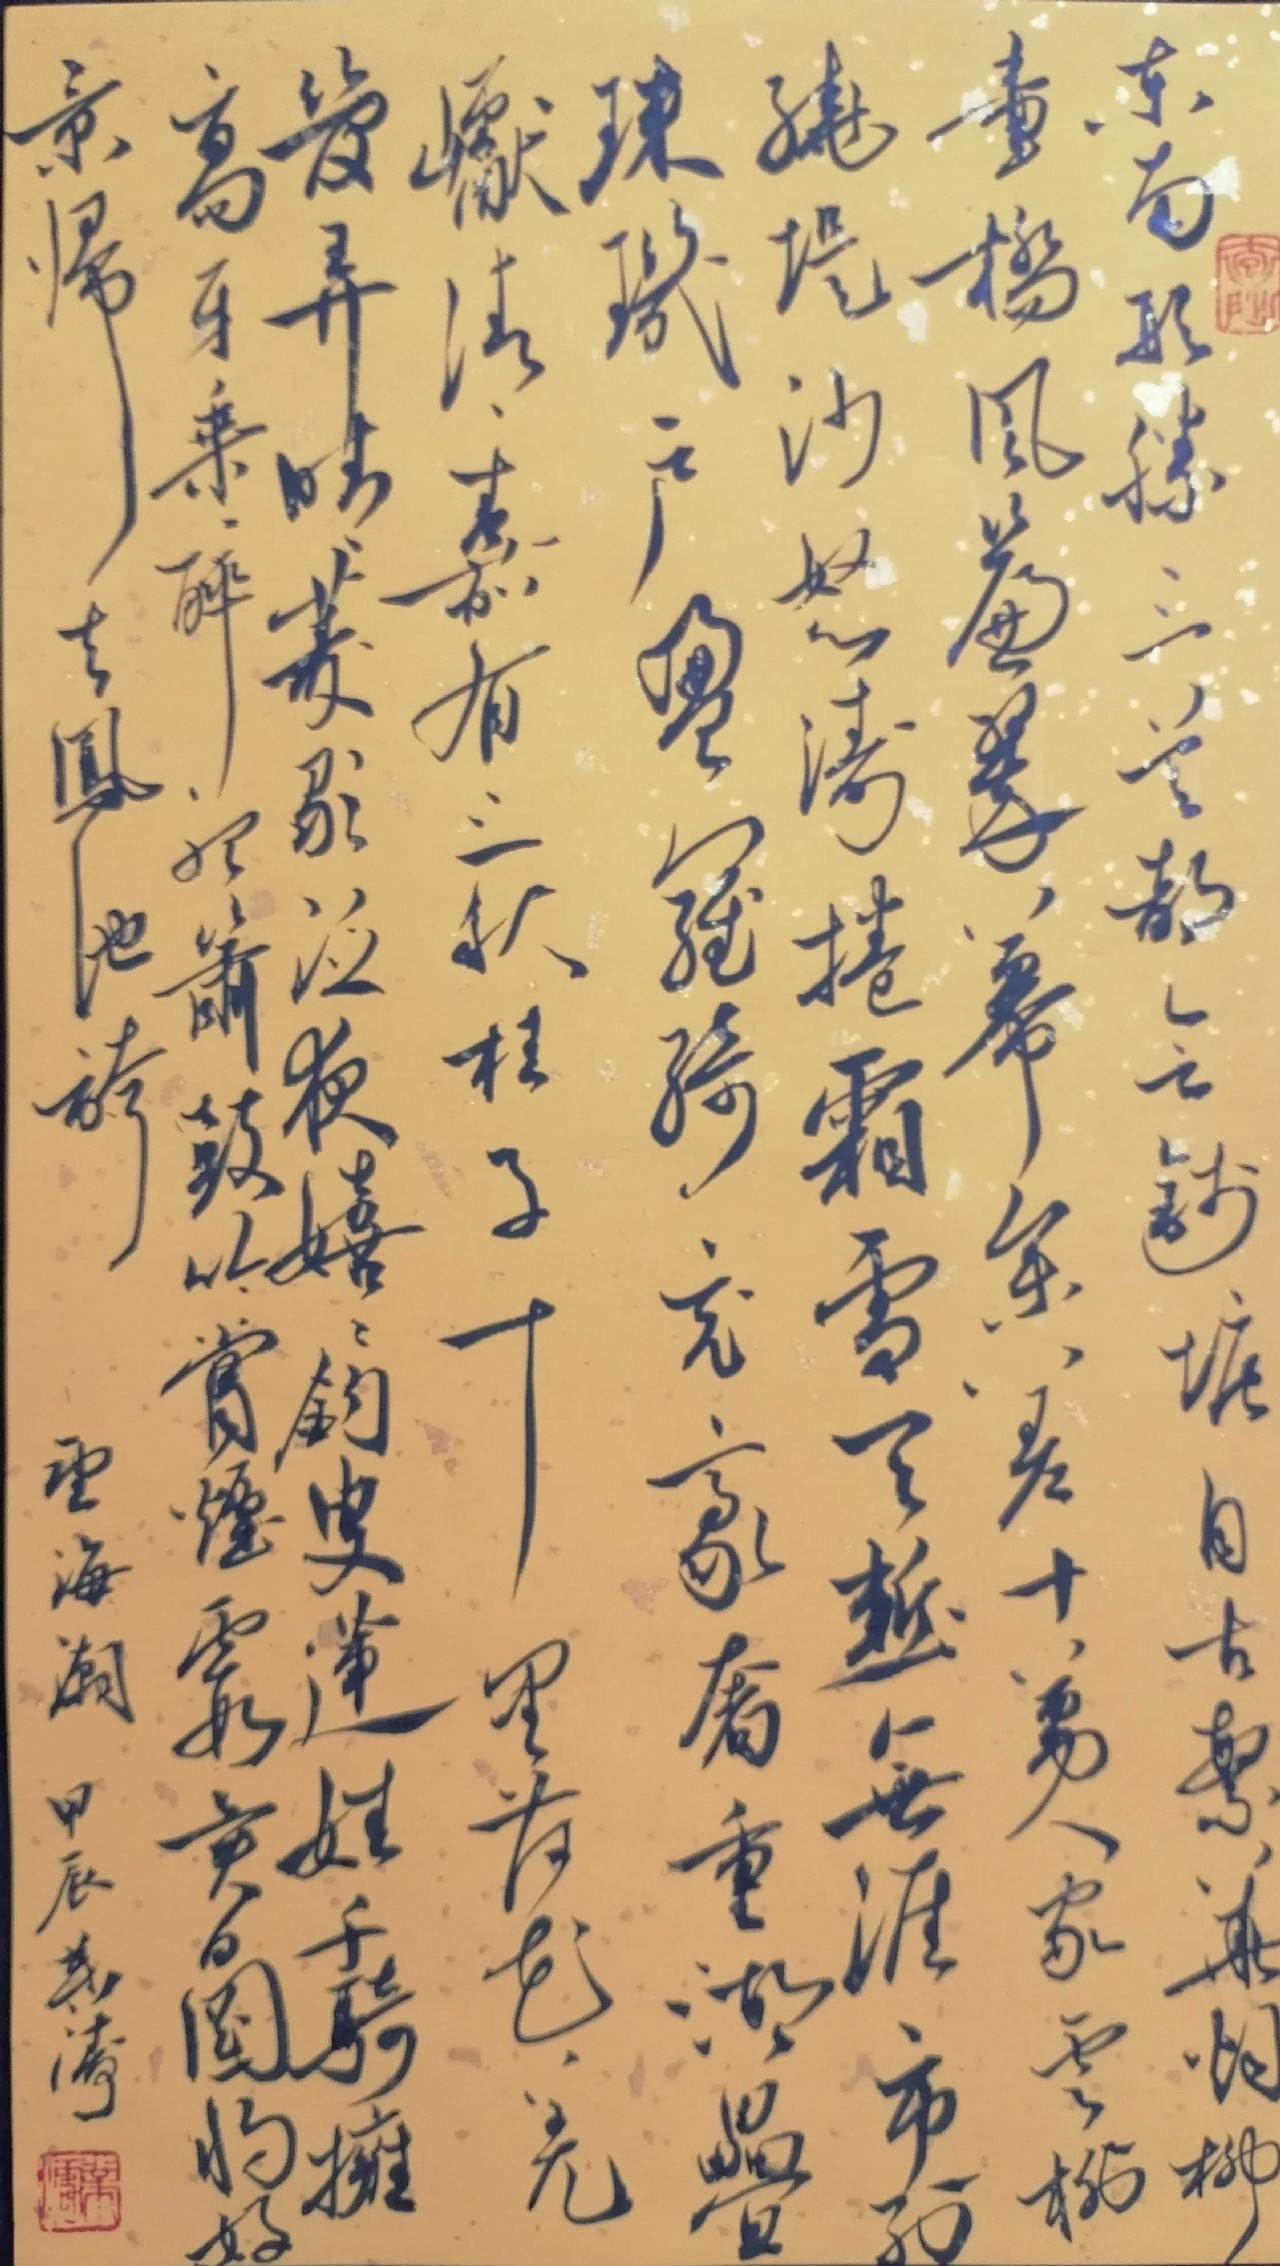 东南形勝三吴都會錢塘自古繁華烟柳
畫橋風簾翠幕参差十萬人家云樹
繞堤沙怒濤捲霜雪天塹無涯市列
珠璣户盈羅綺竞豪奢重湖疊
巘清嘉有三秋桂子十里荷花羌
管弄晴菱歌泛夜嬉嬉釣叟蓮娃千騎擁
高牙乘醉聽簫鼓吟賞煙霞異日圖將好
景歸去鳳池誇 望海潮 甲辰 濤